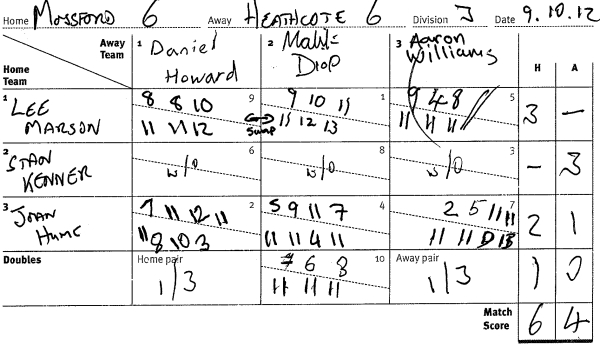 Home MOSSFORD 6 Away HEATHCOTE 6 Division 3 Date 9.10.12
Away Team 1 Daniel Howard 2 Drop 3 Aaron Williams H A
Home Team
1 LEE MARSON 9 8 8 10 1 9 10 11 5 9 4 8 3 -
11 11 12 swap 11 12 13 11 11 11
2 STAN KENNER 6 w/o 8 w/o 3 w/o - 3
3 JOAN 2 7 11 12 11 4 5 9 11 7 7 2 5 11 11 2 1
11 8 10 3 11 11 4 11 11 11
Doubles Home pair 1/3 10 6 8 Away pair 1/3 1 0
11 11 11
Match Score 6 4